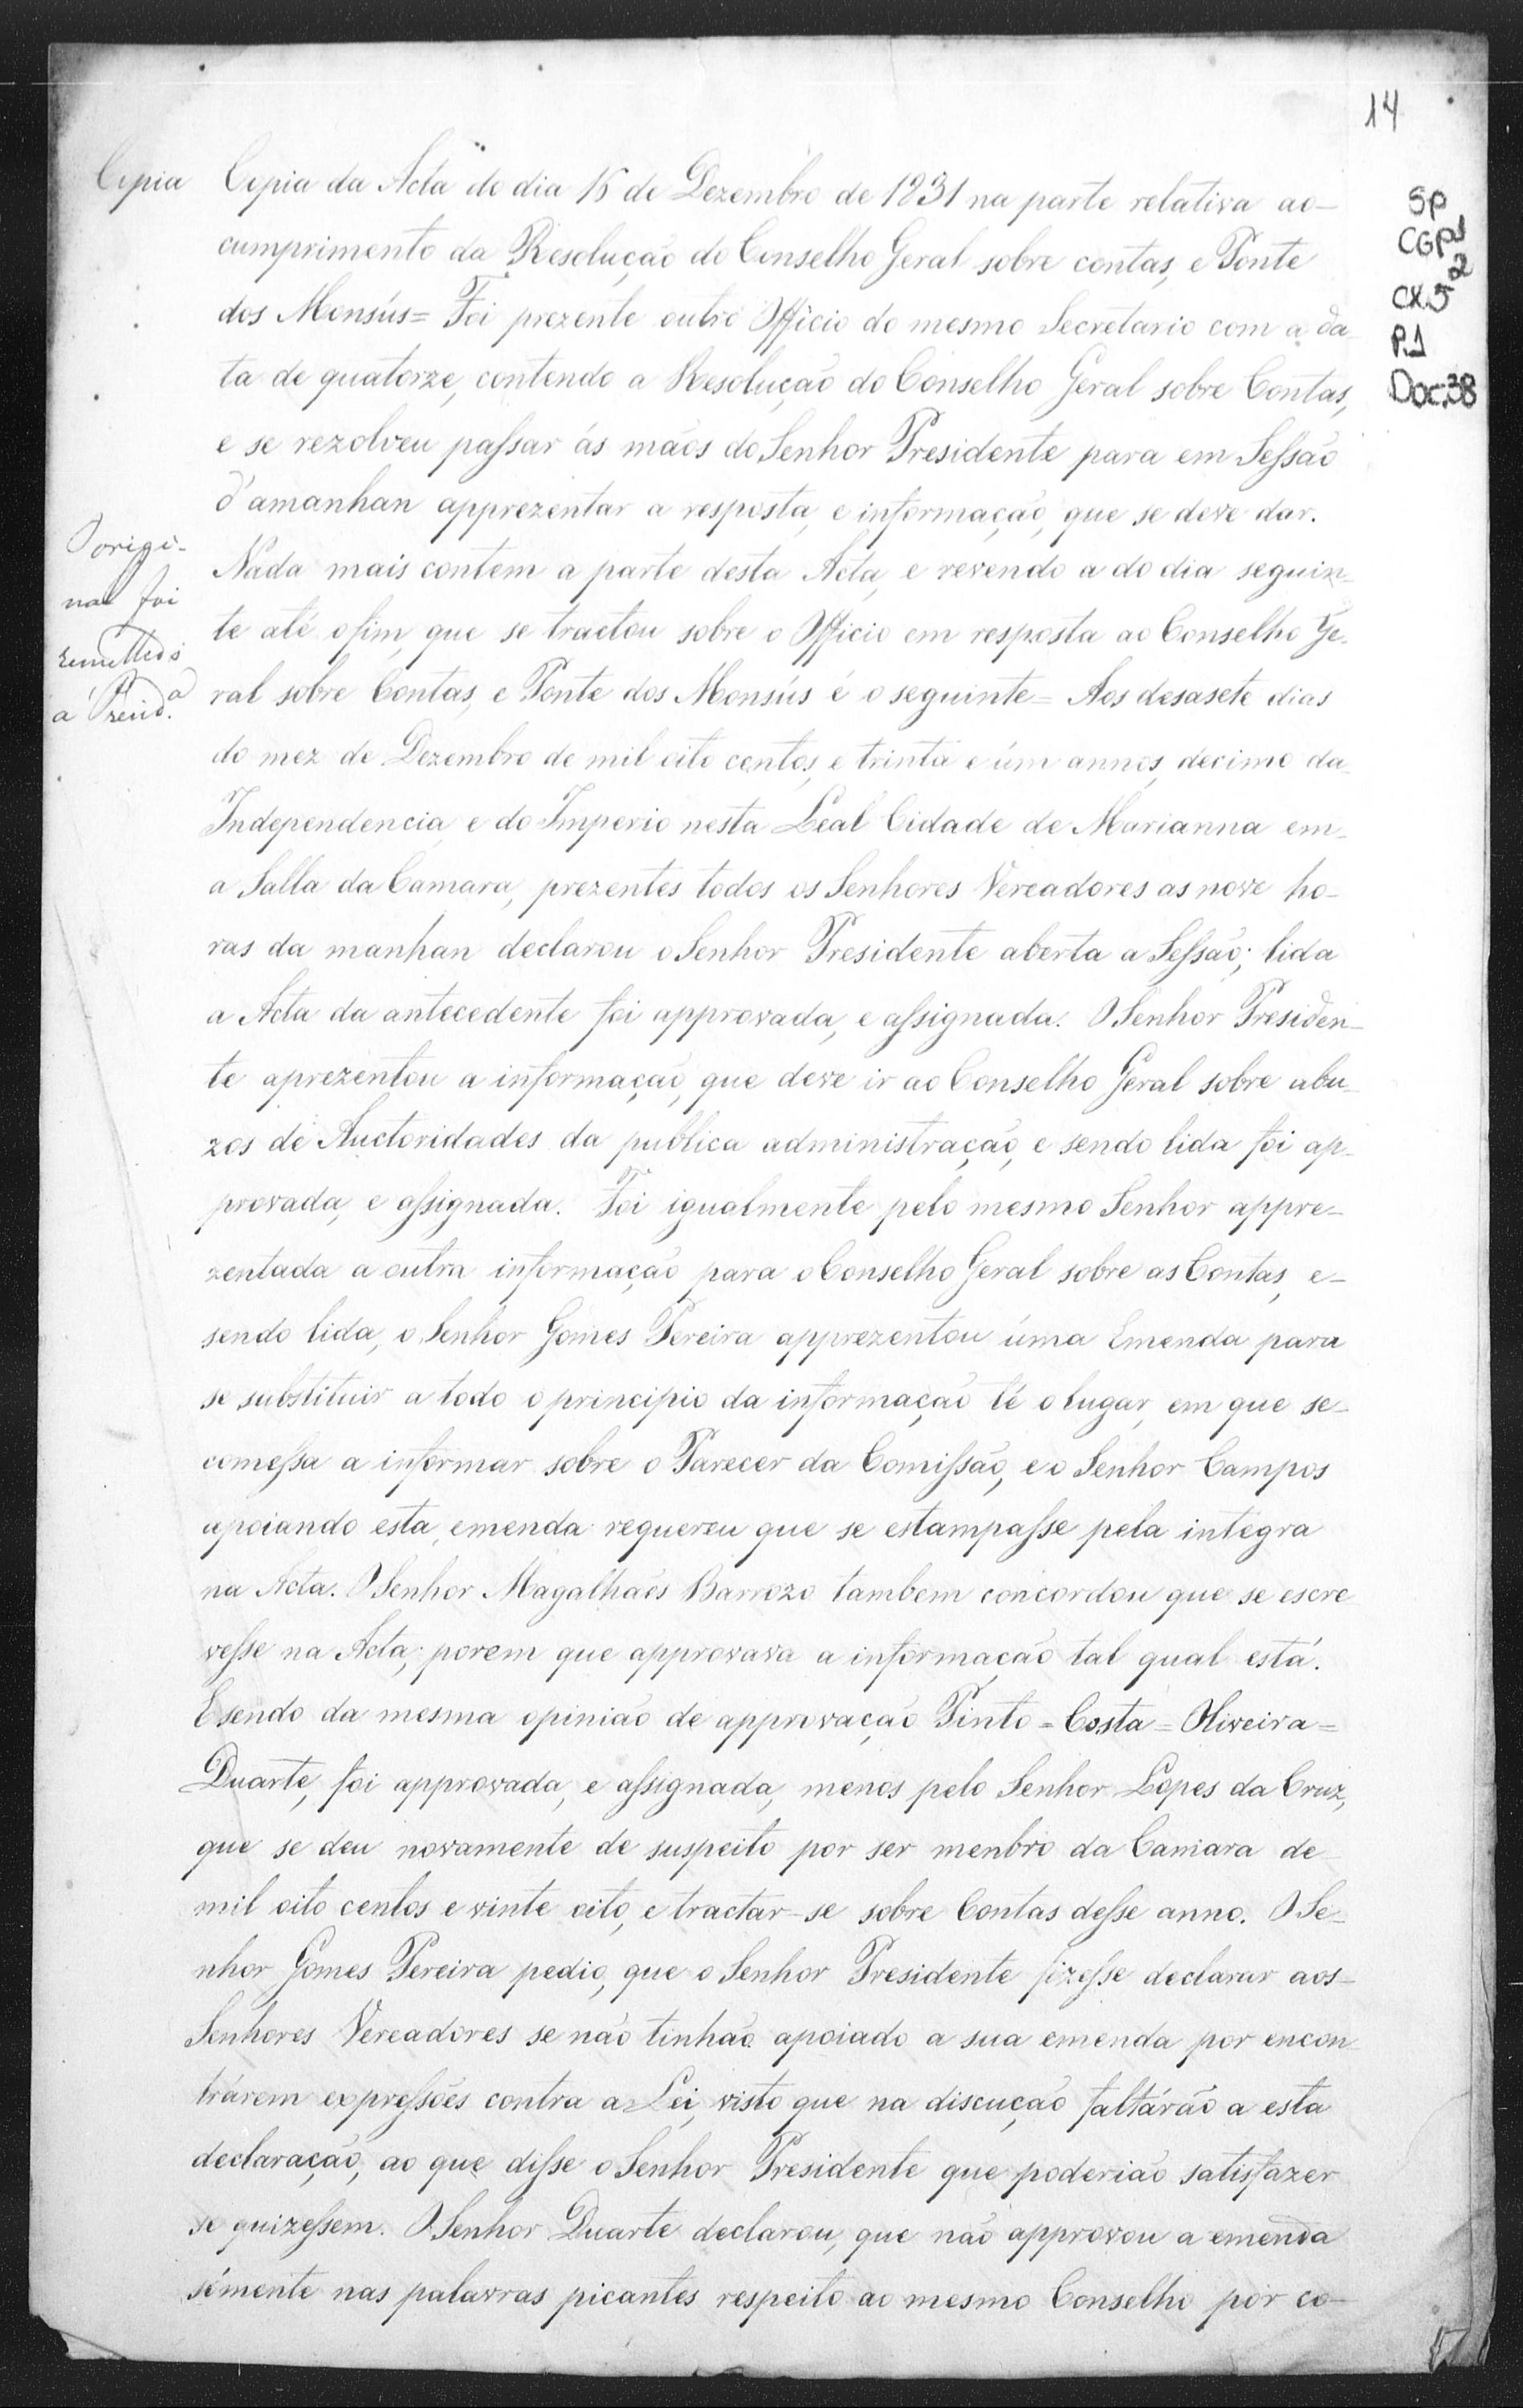 14
SP
CGP1
2
CX.5
P.1
Doc.38
Copia
Copia da Acta do dia 15 de Dezembro de 1831 na parte relativa ao-
cumprimento da Resolução do Conselho Geral sobre contas, e Ponte
dos Monsús= Foi prezente outro Officio do mesmo Secretario com a da-
ta de quatorze, contendo a Resolução do Conselho Geral sobre Contas,
e se rezolveu passar ás mãos do Senhor Presidente para em Sessão
d'amanhan apprezentar a resposta, e informação, que se deve dar.
Nada mais contem a parte desta Acta, e revendo a do dia seguin-
te até o fim, que se tractou sobre o Officio em resposta ao Conselho Ge-
ral sobre Contas, e Ponte dos Monsús é o seguinte= Aos desasete dias
do mez de Dezembro de mil oito centos, e trinta e úm annos, decimo da
Independencia, e do Imperio nesta Leal Cidade de Marianna em-
a Salla da Camara, prezentes todos os Senhores Vereadores as nove ho-
ras da manhan declarou o Senhor Presidente aberta a Sessão; lida
a Acta da antecedente foi approvada, e assignada. O Senhor Presiden-
te aprezentou a informação, que deve ir ao Conselho Geral sobre abu-
zos de Auctoridades da publica administração, e sendo lida foi ap-
provada, e assignada. Foi igualmente pelo mesmo Senhor appre-
zentada a outra informação para o Conselho Geral sobre as Contas, e-
sendo lida, o Senhor Gomes Pereira apprezentou úma Emenda para
se substituir a todo o principio da informação té o lugar, em que se-
comessa a informar sobre o Parecer da Comissão, e o Senhor Campos
apoiando esta emenda requereu que se estampasse pela integra
na Acta. O Senhor Magalhaẽs Barrozo tambem concordou que se escre
vesse na Acta; porem que approvava a informação tal qual está.
E sendo da mesma opinião de approvação Pinto = Costa = Oliveira =
Duarte, foi approvada, e assignada, menos pelo Senhor Lopes da Cruz,
que se deu novamente de suspeito por ser menbro da Camara de
mil oito centos e vinte oito, e tractar-se sobre Contas desse anno. O Se-
nhor Gomes Pereira pedio, que o Senhor Presidente fizesse declarar aos-
Senhores Vereadores se não tinhão apoiado a sua emenda por encon
trárem expressões contra a Lei, visto que na discução faltárão a esta
declaração, ao que disse o Senhor Presidente que poderião satisfazer
se quizessem. O Senhor Duarte declarou, que não approvou a emenda
sómente nas palavras picantes respeito ao mesmo Conselho por co-
O origi-
nal foi
remettido
á Presid.a